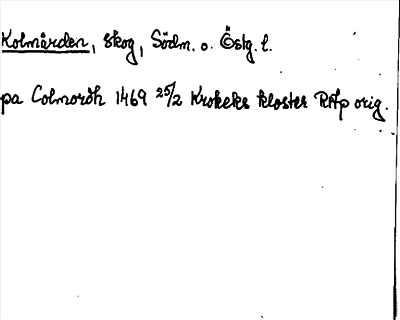 Kolmården, skog, Södm. o. Östg. l.
pa Colmordh 1469 25/2 Krokeks kloster RAp orig.